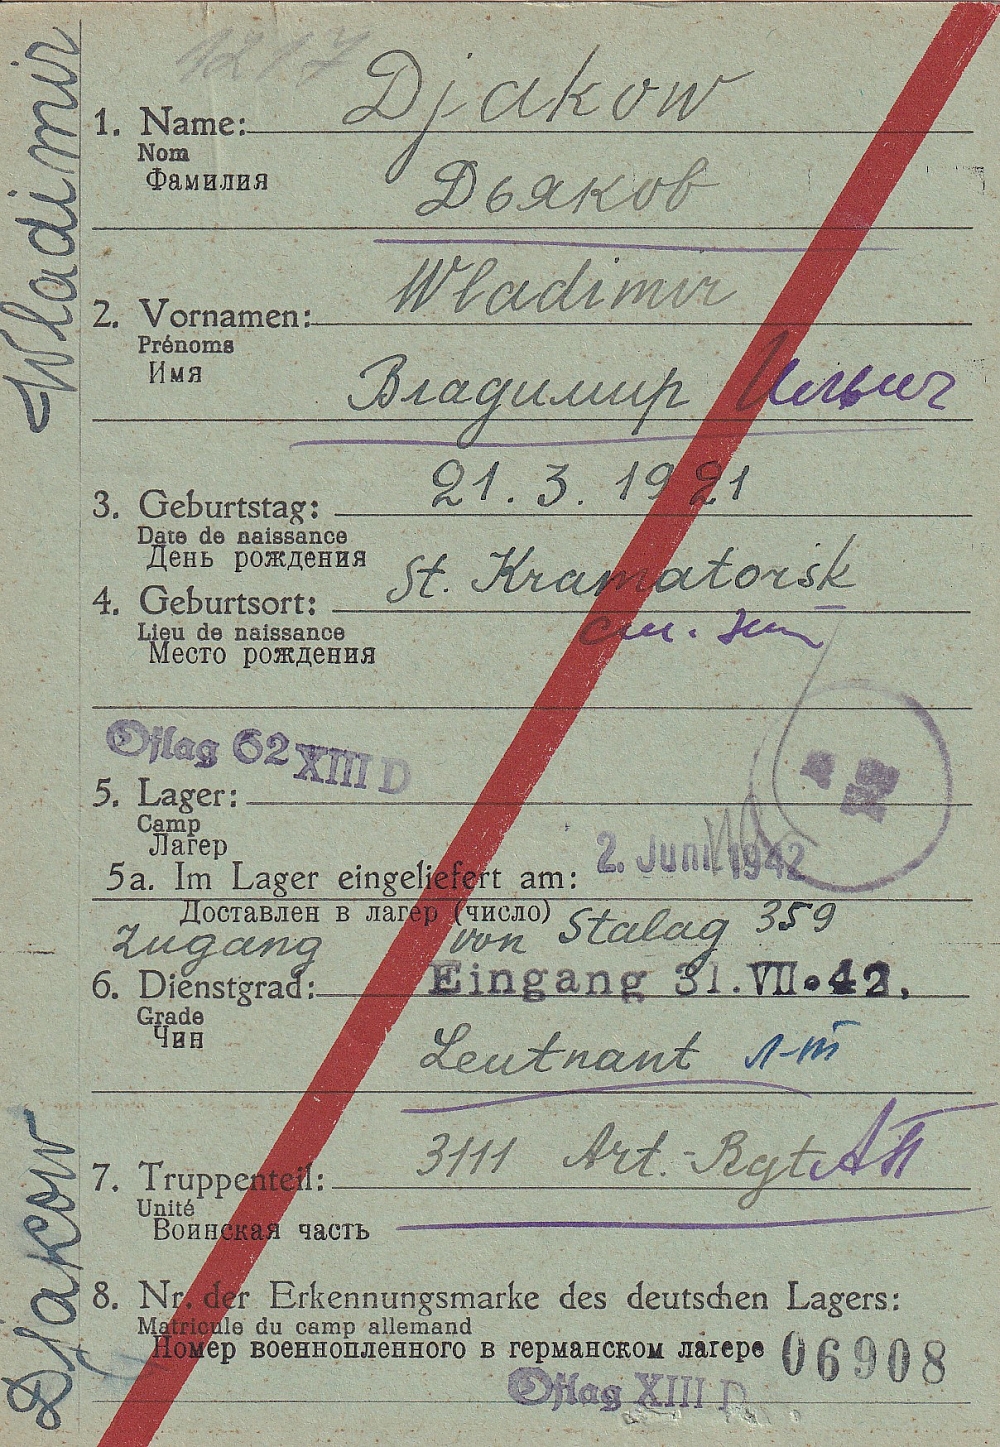 1217
Djakow
1. Name:
Nom
Фамилия
Дьяков
Wladimir
2. Vornamen:
Prénoms
Имя
Владимир Ильич
21. 3. 1921
3. Geburtstag:
Date de naissance
День рождения
St. Kramatorsk
4. Geburtsort:
Lieu de naissance
Место рождения
Oflag 62 XIII D
5. Lager:
Camp
Лагер
2. Juni 1942
5a. Im Lager eingeliefert am:
Доставлен в лагер (число)
Zugang von Stalag 359
6. Dienstgrad: Eingang 31. VII. 42.
Grade
Чин
Leutnant л-т
7. Truppenteil: 3111 Art.-Rgt АП
Unité
Воинская часть
8. Nr. der Erkennungsmarke des deutschen Lagers:
Matricule du camp allemand
Номер военнопленного в германском лагере 06908
Oflag XIII D
Djakow
Wladimir